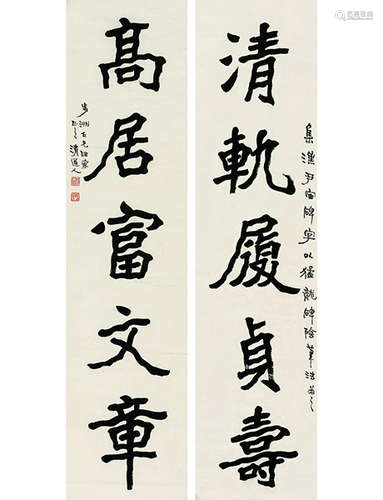 清軌履貞壽
集漢尹宙碑字以猛龍碑陰筆法為之
高居富文章
清道人